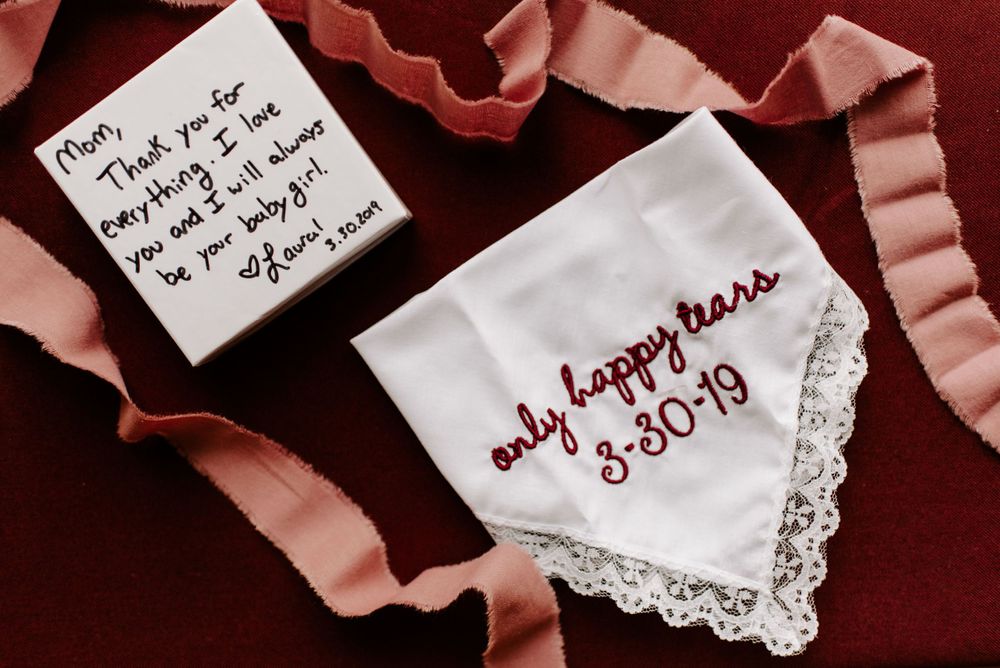 Mom,
Thank you for
everything. I love
you and I will always
be your baby girl.
♡Laural
3.30.2019
only happy tears
3-30-19